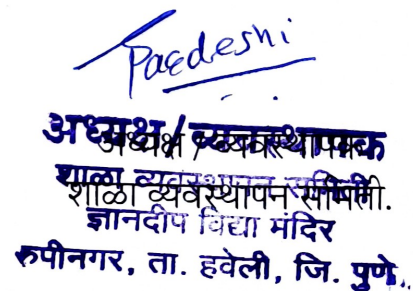 Pardeshi
अध्यक्ष / व्यवस्थापक
अध्यक्ष / व्यवस्थापक
शाळा व्यवस्थापन समिती
शाळा व्यवस्थापन समिती.
ज्ञानदीप विद्या मंदिर
रुपीनगर, ता. हवेली, जि. पुणे.